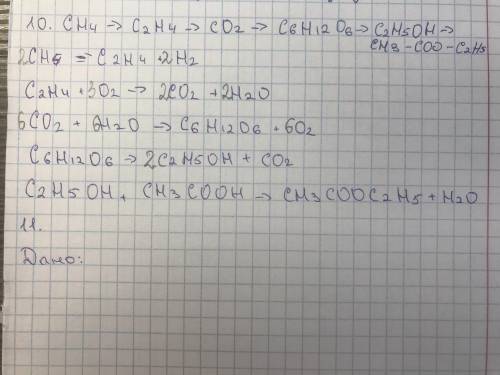 10. CH4 → C2H4 → CO2 → C6H12O6 → C2H5OH →
CH3-COO-C2H5
2CH4 = C2H4 + 2H2
C2H4 + 3O2 → 2CO2 + 2H2O
6CO2 + 6H2O → C6H12O6 + 6O2
C6H12O6 → 2C2H5OH + CO2
C2H5OH + CH3COOH → CH3COOC2H5 + H2O
11.
Дано: